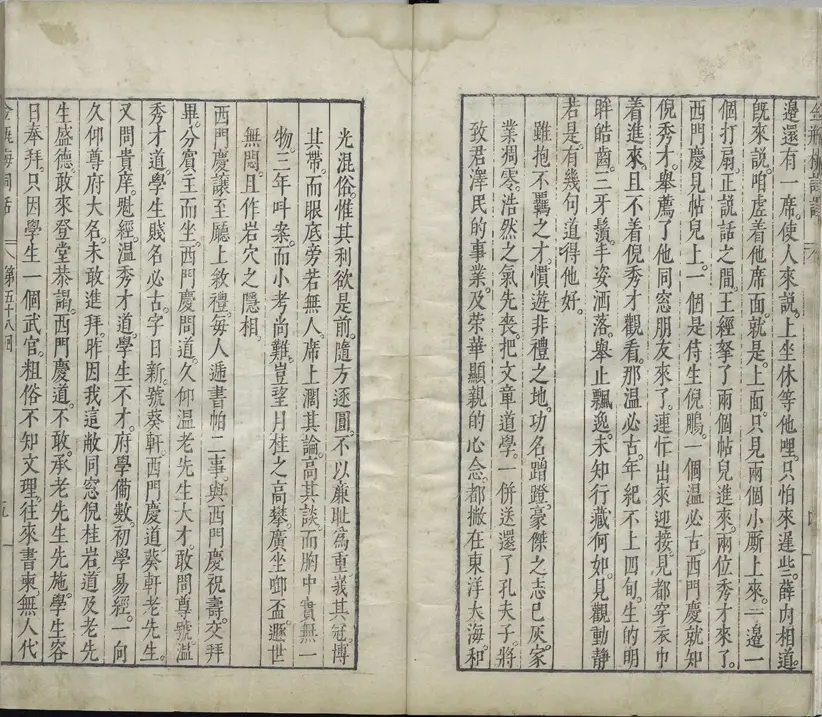 金瓶梅詞話
邊還有一席。使人來說。上坐休等他哩。只怕來遲些。薛內相道。
既來說。咱虛着他席面就是。上面只見兩個小廝上來。一邊一
個打扇。正說話之間。王經拏了兩個帖兒進來。兩位秀才來了。
西門慶見帖兒上。一個是侍生倪鵬。一個溫必古。西門慶就知
倪秀才。舉薦了他同窓朋友來了。連忙出來迎接。見都穿衣巾
着進來。且不着倪秀才觀看。那溫必古。年紀不上四旬。生的明
眸皓齒。三牙鬚。丰姿洒落。舉止飄逸。未知行藏何如。見觀動静
若是。有幾句道得他好。
雖抱不羈之才。慣遊非禮之地。功名蹭蹬。豪傑之志已灰。家
業凋零。浩然之氣先喪。把文章道學。一併送還了孔夫子。將
致君澤民的事業。及荣華顯親的心念。都撇在東洋大海。和
光混俗。惟其利欲是前。隨方逐圓。不以廉耻為重。峩其冠。博
其帶。而眼底旁若無人。席上濶其論。高其談。而胸中實無一
物。三年呌案。而小考尚難。豈望月桂之高攀。廣坐啣盃。遯世
無悶。且作岩穴之隱相。
西門慶讓至廳上敘禮。每人遞書帕二事。與西門慶祝壽。交拜
畢。分賓主而坐。西門慶問道。久仰溫老先生大才。敢問尊號。溫
秀才道。學生賤名必古。字日新。號葵軒。西門慶道。葵軒老先生。
又問貴庠。魁經。溫秀才道。學生不才。府學備數。初學易經。一向
久仰尊府大名。未敢進拜。昨因我這敝同窓倪桂岩。道及老先
生盛德。敢來登堂恭謁。西門慶道。不敢。承老先生先施。學生容
日奉拜。只因學生一個武官。粗俗不知文理。往來書柬。無人代
金瓶梅詞話 第五十八囘 五